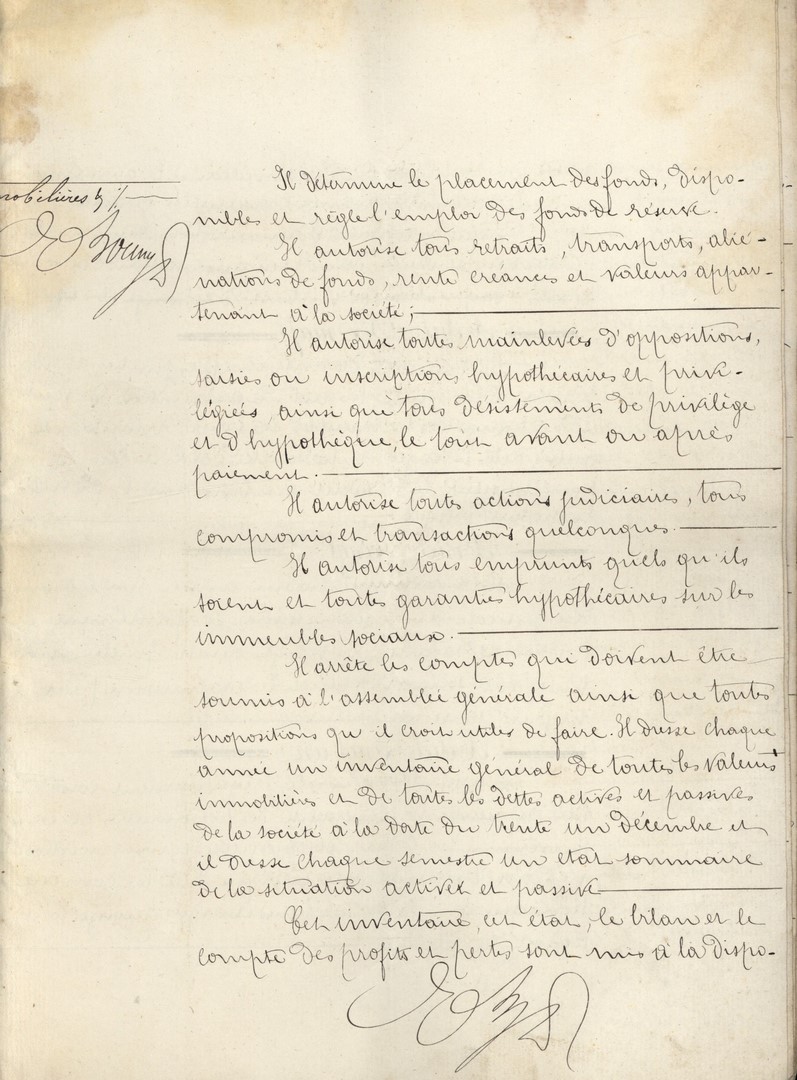 mobilières &
Il détermine le placement des fonds, dispo-
nibles et règle l'emploi des fonds de réserve.
Il autorise tous retraits, transports, alié-
nations de fonds, rente créances et valeurs appar-
tenant à la société;
Il autorise toutes mainlevées d'oppositions,
saisies ou inscriptions hypothécaires et privi-
légiées, ainsi que tous désistements de privilège
et d'hypothèque, le tout avant ou après
paiement.
Il autorise toutes actions judiciaires, tous
compromis et transactions quelconques.
Il autorise tous emprunts quels qu'ils
soient et toutes garanties hypothécaires sur les
immeubles sociaux.
Il arrête les comptes qui doivent être
soumis à l'assemblée générale ainsi que toutes
propositions qu'il croit utiles de faire. Il dresse chaque
année un inventaire général de toutes les valeurs
immobilières et de toutes les dettes actives et passives
de la société à la date du trente un décembre et
il dresse chaque semestre un état sommaire
de la situation active et passive
Cet inventaire, cet état, le bilan et le
compte des profits et pertes sont mis à la dispo-